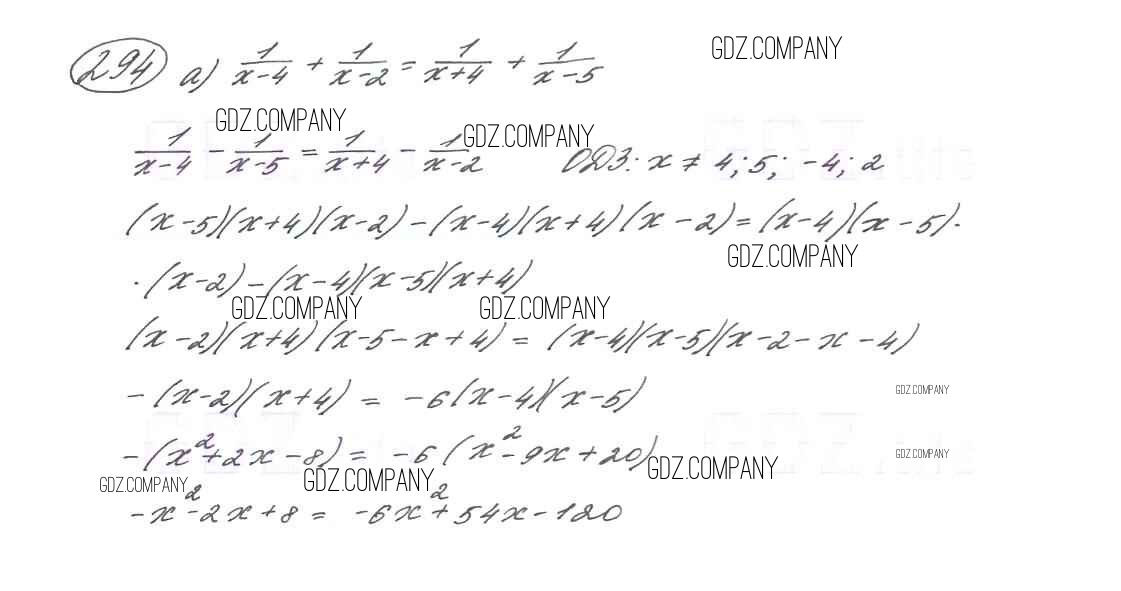 294 а) 1/(x-4) + 1/(x-2) = 1/(x+4) + 1/(x-5)
GDZ.COMPANY
GDZ.COMPANY
GDZ.COMPANY
1/(x-4) - 1/(x-5) = 1/(x+4) - 1/(x-2) ОДЗ: x ≠ 4; 5; -4; 2
(x-5)(x+4)(x-2)-(x-4)(x+4)(x-2)=(x-4)(x-5)·
GDZ.COMPANY
·(x-2)-(x-4)(x-5)(x+4)
GDZ.COMPANY GDZ.COMPANY
(x-2)(x+4)(x-5-x+4) = (x-4)(x-5)(x-2-x-4)
-(x-2)(x+4) = -6(x-4)(x-5)
GDZ.COMPANY
-(x²+2x-8) = -6(x²-9x+20)
GDZ.COMPANY
GDZ.COMPANY
GDZ.COMPANY GDZ.COMPANY
-x²-2x+8 = -6x²+54x-120